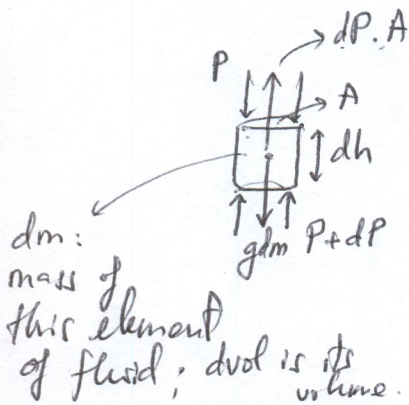 dP. A
P
A
dh
gdm P+dP
dm:
mass of
this element
of fluid; dvol is its
volume.